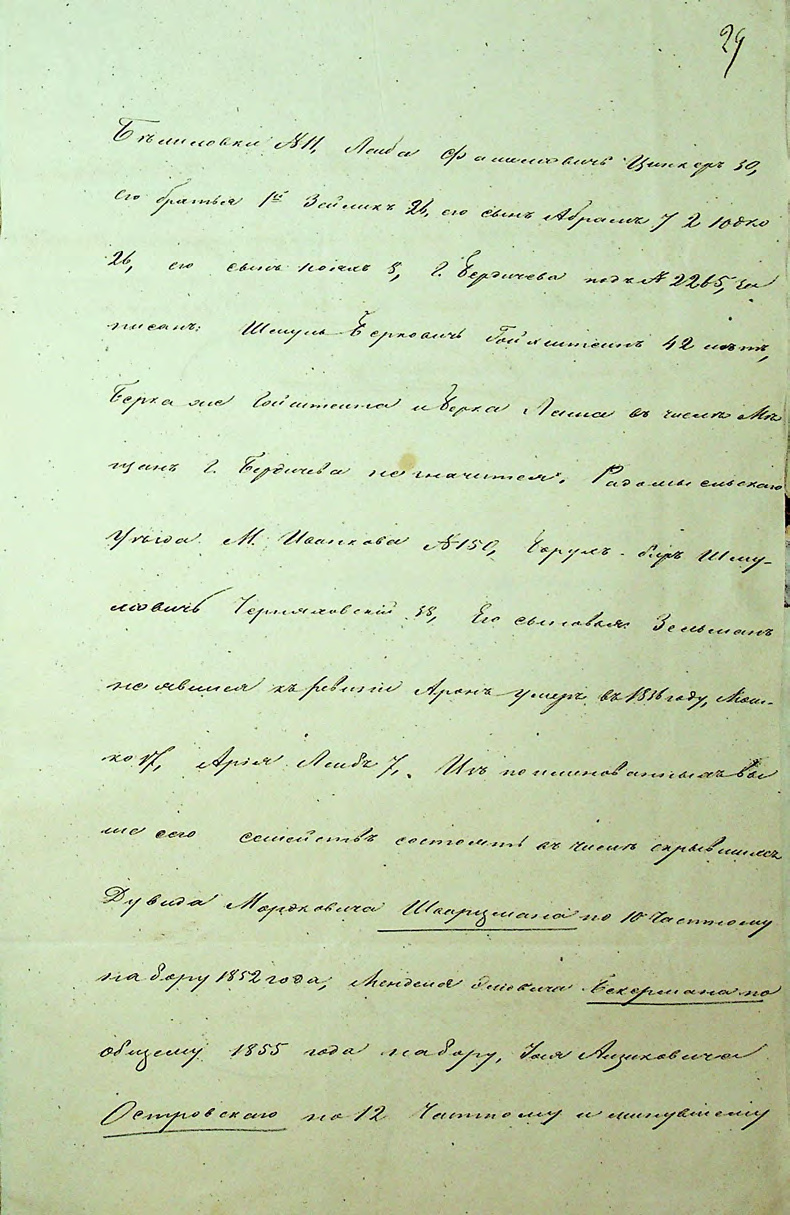 29
Бѣлиловки №11, Лейба Фалиловичь Цинкеръ 30,
его братья 1й Зейликъ 26, его сынъ Абрамъ 7 2 Юдко
26, его сынъ 8, г. Бердичева подъ № 2265, за
писанъ: Шмуль Берковичь 42 лѣтъ,
Берка же и Берка Лаша въ числѣ Мѣ
щанъ г. Бердичева не значится. Радомысельскаго
Уѣзда М. Иванкова №150, Шму-
ловичь Черняховскій 38, Его сыновья: Зельманъ
не явился къ ревизіи Аронъ умеръ въ 1836 году, Мош-
ко 17, Арія Лейбъ 7, Изъ поименованныхъ вы
ше сего семействъ состоятъ въ числѣ скрывшихся
Дувида Мордковича Шварцмана по 10 Частному
набору 1852 года, Менделя Бекермана по
общему 1855 года набору, Ициковича
Островскаго по 12 Частному и минувшему